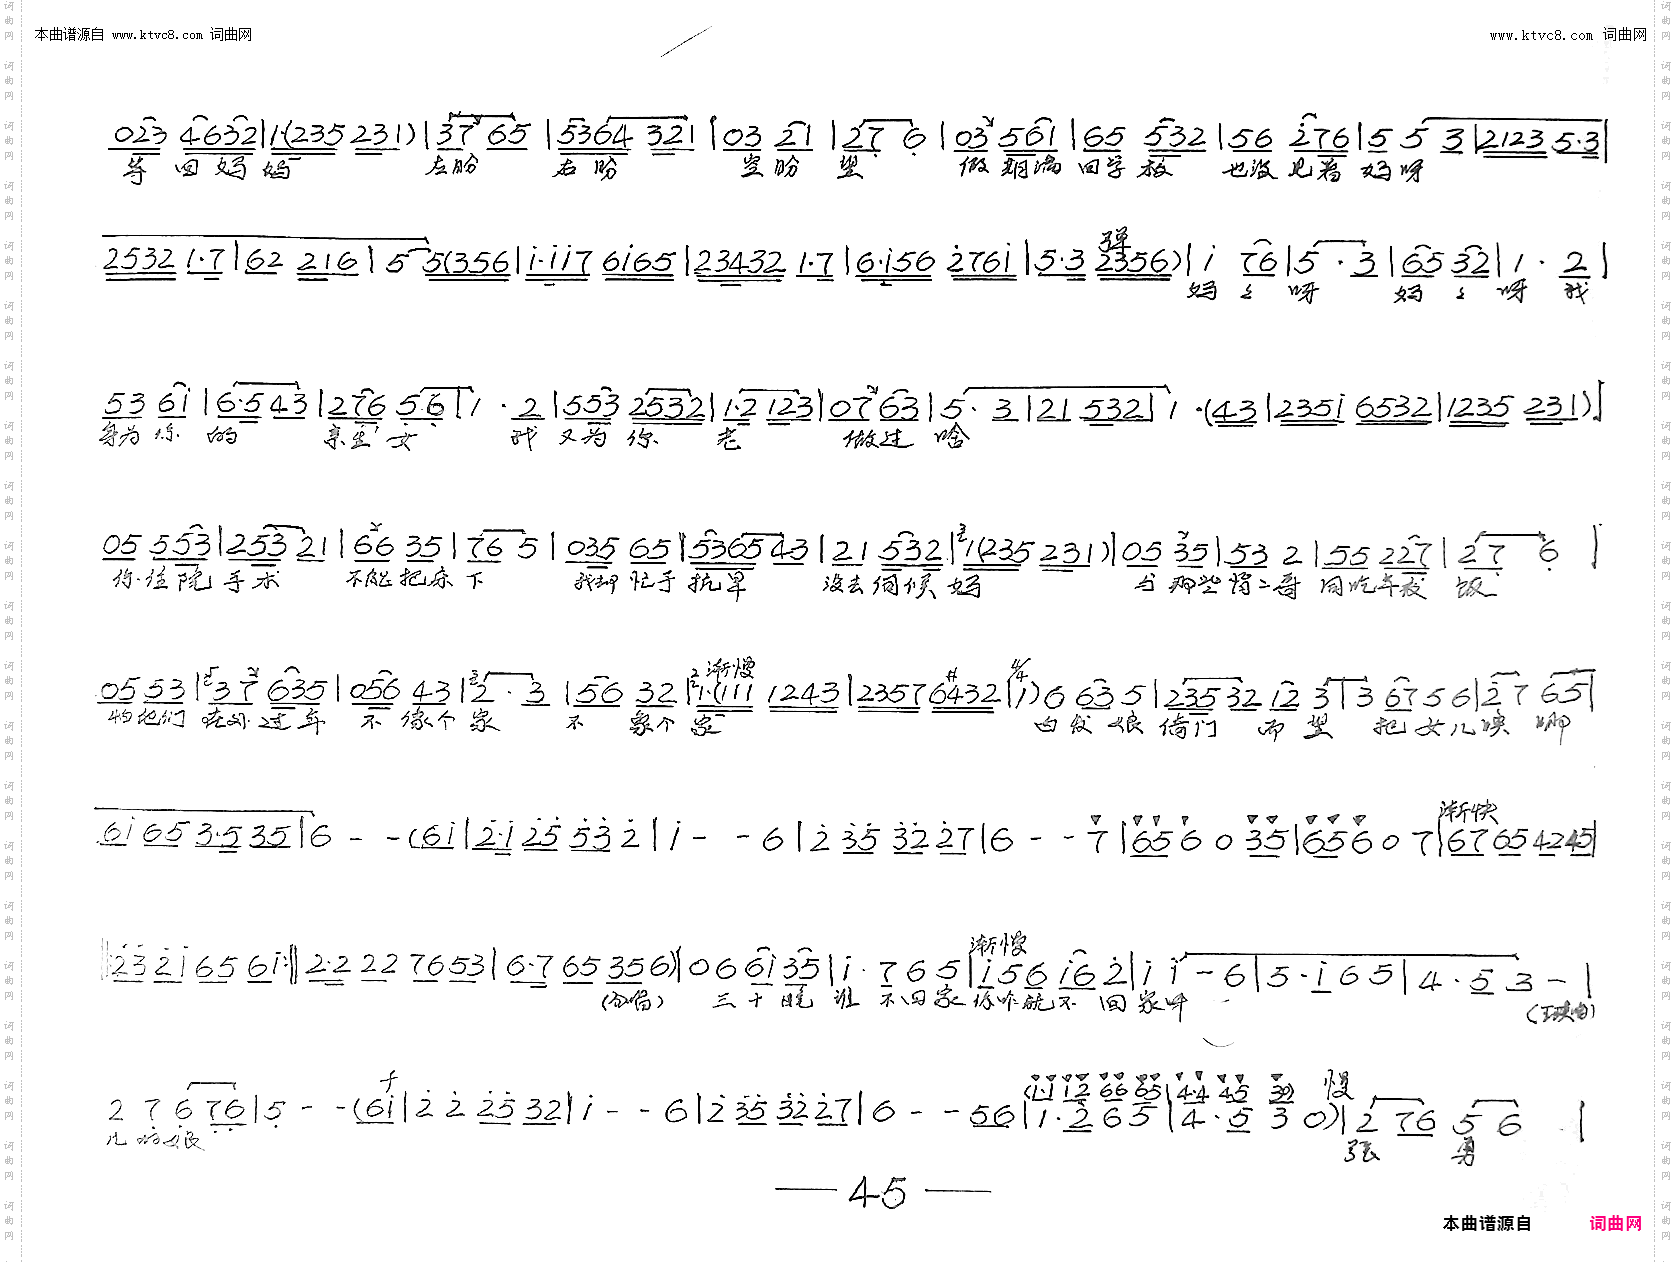 本曲谱源自 www.ktvc8.com 词曲网
www.ktvc8.com 词曲网
023 4632 | 1·(235 231) | 37 65 | 5364 321 | 03 21 | 27 6 | 03 561 | 65 532 | 56 276 | 5 5 3 | 2123 5·3 |
等 回 妈 妈 左盼 右 盼 空 盼 望 做 期满 回 学 校 也没 见着 妈呀
2532 1·7 | 62 216 | 5 5(356 | i·ii7 6i65 | 23432 1·7 | 6·i56 276i | 5·3 2356) | i 76 | 5 · 3 | 65 32 | 1 · 2 |
弹
妈 呀 妈 呀 我
53 6i | 6·5 43 | 276 5·6 | 1 · 2 | 553 2532 | 1·2 123 | 07 63 | 5 · 3 | 21 532 | 1 · (43 | 235i 6532 | 1235 231) |
身为 你 的 亲生 女 我 又为 你 老 做过 啥
05 553 | 253 21 | 66 35 | 76 5 | 035 65 | 53653 43 | 21 532 | 1(235 231) | 05 35 | 53 2 | 55 227 | 27 6 |
你住院 手术 不能把床 下 我却 忙于 抗旱 没去伺候 妈 与 那些 二哥 同吃年夜 饭
渐慢
05 53 | 37 635 | 056 43 | 2 · 3 | 56 32 | 1·(111 1243 | 23576432 | 1) 6 63 5 | 235 32 12 3 | 3 67 5 6 | 27 65 |
怕他们 在外 过年 不 像个 家 不 象个 家 白发 娘 倚门 而 望 把 女儿唤 哪
渐快
6i 65 3·5 35 | 6 - - (6i | 2·i 25 53 2 | i - - 6 | 2 35 32 27 | 6 - - 7 | 65 6 0 35 | 65 6 0 7 | 67 65 42 45 |
渐慢
23 2i 65 6i :‖ 2·2 22 7653 | 6·7 65 356) | 0 6 6i 35 | i · 7 6 5 | i 5 6 i6 2 | i i - 6 | 5 · i 6 5 | 4 · 5 3 - |
三 十 晚 谁 不回家 你咋能不 回家呀
(1·1 12 66 65 | 4·4 45 30) 慢
2 7 6 76 | 5 - - (6i | 2 2 25 32 | i - - 6 | 2 35 32 27 | 6 - - 56 | 1 · 2 6 5 | 4 · 5 3 0) | 2 76 5 6 |
儿的娘 张 勇
— 45 —
本曲谱源自 词曲网